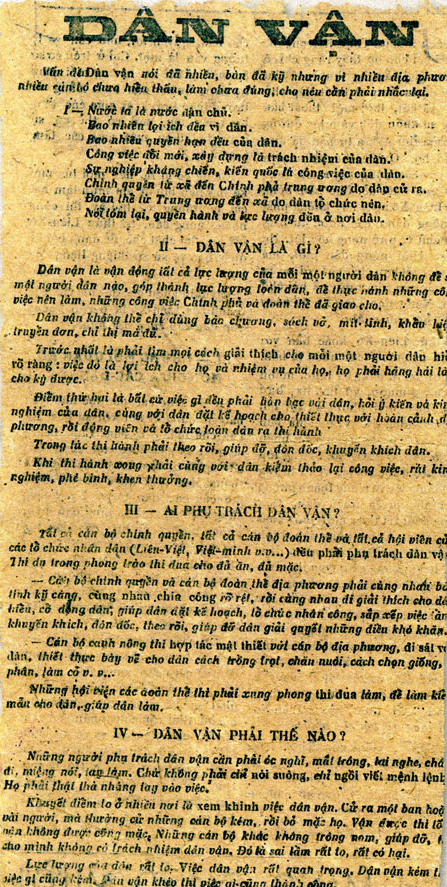 DÂN VẬN
Vấn đề Dân vận nói đã nhiều, bàn đã kỹ nhưng vì nhiều địa phươ
nhiều cán bộ chưa hiểu thấu, làm chưa đúng, cho nêu cần phải nhắc lại.
I — Nước ta là nước dân chủ.
Bao nhiêu lợi ích đều vì dân.
Bao nhiêu quyền hạn đều của dân.
Công việc đổi mới, xây dựng là trách nhiệm của dân.
Sự nghiệp kháng chiến, kiến quốc là công việc của dân.
Chính quyền từ xã đến Chính phủ trung ương do dân cử ra.
Đoàn thể từ Trung ương đến xã do dân tổ chức nên.
Nói tóm lại, quyền hành và lực lượng đều ở nơi dân.
II — DÂN VẬN LÀ GÌ?
Dân vận là vận động tất cả lực lượng của mỗi một người dân không để s
một người dân nào, góp thành lực lượng toàn dân, để thực hành những cô
việc nên làm, những công việc Chính phủ và đoàn thể đã giao cho.
Dân vận không thể chỉ dùng báo chương, sách vở, mít-tinh, khẩu hiệ
truyền đơn, chỉ thị mà đủ.
Trước nhất là phải tìm mọi cách giải thích cho mỗi một người dân hiể
rõ ràng: việc đó là lợi ích cho họ và nhiệm vụ của họ, họ phải hăng hái là
cho kỳ được.
Điểm thứ hai là bất cứ việc gì đều phải bàn bạc với dân, hỏi ý kiến và kin
nghiệm của dân, cùng với dân đặt kế hoạch cho thiết thực với hoàn cảnh đ
phương, rồi động viên và tổ chức toàn dân ra thi hành
Trong lúc thi hành phải theo rõi, giúp đỡ, đôn đốc, khuyến khích dân.
Khi thi hành xong phải cùng với dân kiểm thảo lại công việc, rút kin
nghiệm, phê bình, khen thưởng.
III — AI PHỤ TRÁCH DÂN VẬN?
Tất cả cán bộ chính quyền, tất cả cán bộ đoàn thể và tất cả hội viên củ
các tổ chức nhân dân (Liên-Việt, Việt-minh v.v...) đều phải phụ trách dân vậ
Thí dụ trong phong trào thi đua cho đủ ăn, đủ mặc.
— Cán bộ chính quyền và cán bộ đoàn thể địa phương phải cùng nhau bà
tính kỹ càng, cùng nhau chia công rõ rệt, rồi cùng nhau đi giải thích cho dâ
hiểu, cổ động dân, giúp dân đặt kế hoạch, tổ chức nhân công, sắp xếp việc làm
khuyến khích, đôn đốc, theo rõi, giúp đỡ dân giải quyết những điều khó khăn.
— Cán bộ canh nông thì hợp tác mật thiết với cán bộ địa phương, đi sát v
dân, thiết thực bày vẽ cho dân cách trồng trọt, chăn nuôi, cách chọn giống,
phân, làm cỏ v. v...
Những hội viên các đoàn thể thì phải xung phong thi đua làm, để làm kiể
mẫu cho dân, giúp dân làm.
IV — DÂN VẬN PHẢI THẾ NÀO?
Những người phụ trách dân vận cần phải óc nghĩ, mắt trông, tai nghe, châ
đi, miệng nói, tay làm. Chứ không phải chỉ nói suông, chỉ ngồi viết mệnh lệnh
Họ phải thật thà nhúng tay vào việc.
Khuyết điểm to ở nhiều nơi là xem khinh việc dân vận. Cử ra một ban hoặ
vài người, mà thường cử những cán bộ kém, rồi bỏ mặc họ. Vận được thì tố
nên không được cũng mặc. Những cán bộ khác không trông nom, giúp đỡ, t
cho mình không có trách nhiệm dân vận. Đó là sai lầm rất to, rất có hại.
Lực lượng của dân rất to. Việc dân vận rất quan trọng. Dân vận kém t
việc gì cũng kém. Dân vận khéo thì việc gì cũng thành công.